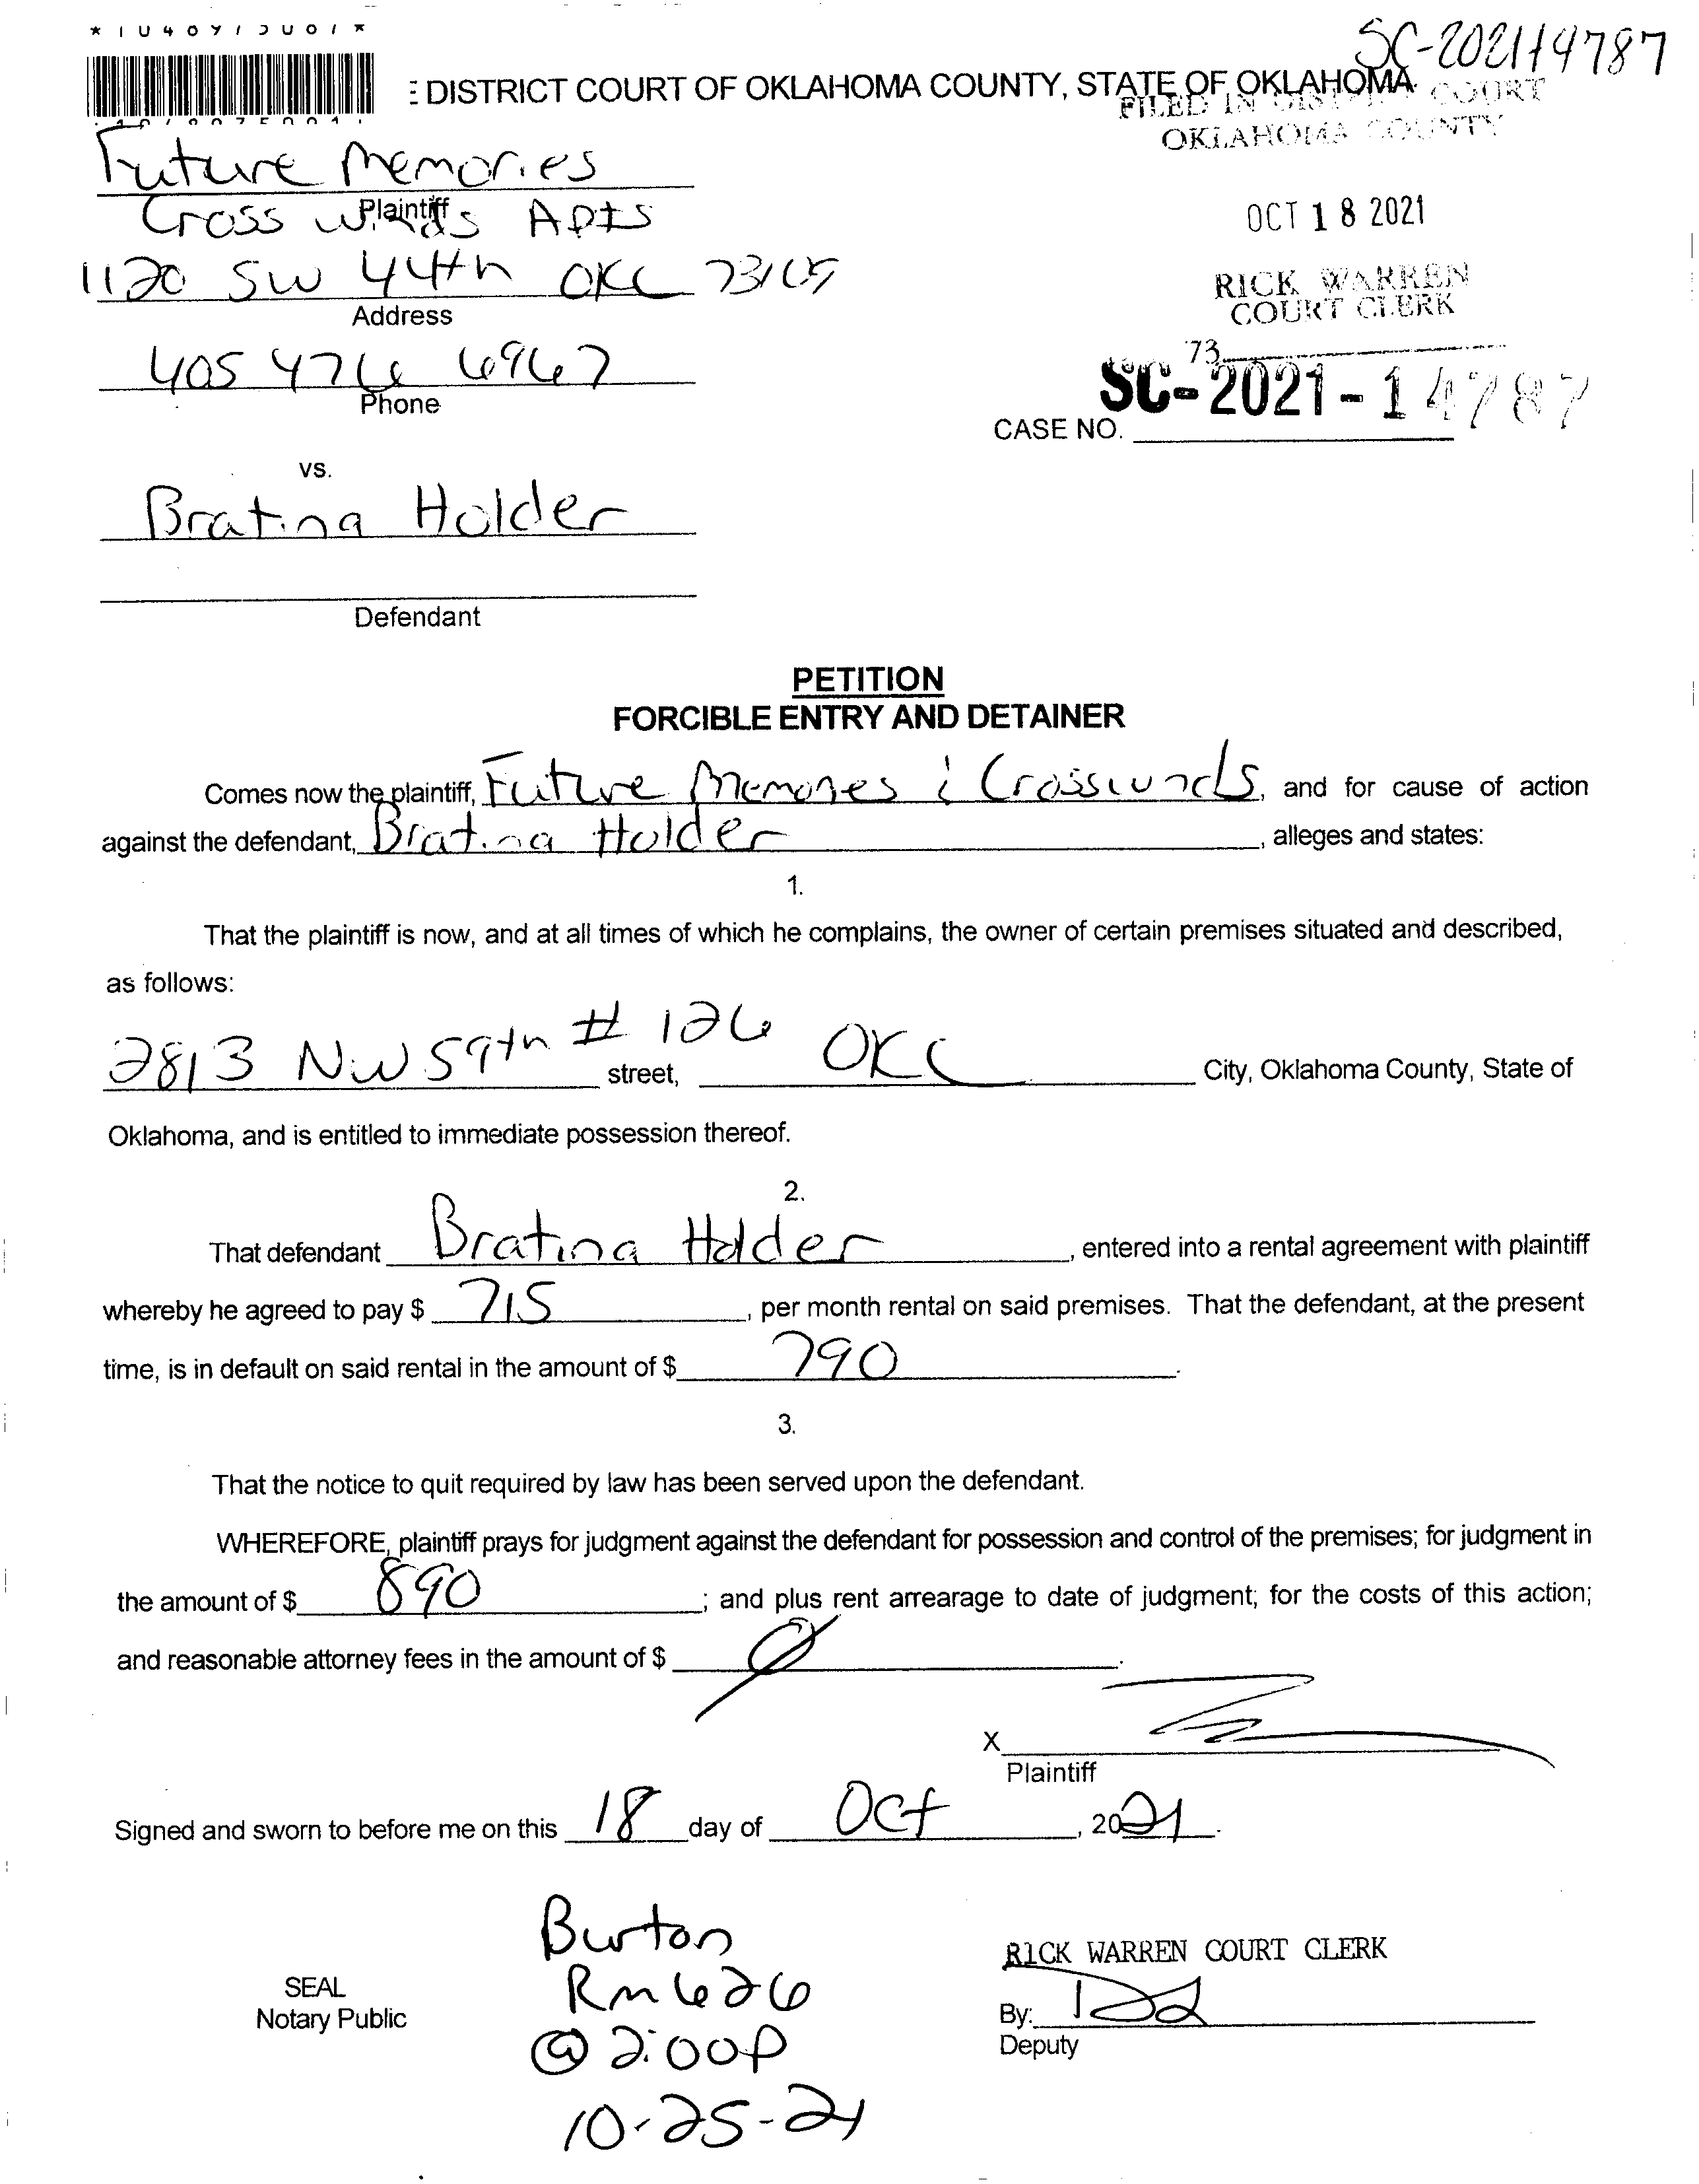 SC-2021-14787
DISTRICT COURT OF OKLAHOMA COUNTY, STATE OF OKLAHOMA
FILED IN DISTRICT COURT
OKLAHOMA COUNTY
Future Memories
Plaintiff
Cross winds Apts
OCT 18 2021
1120 SW 44th OKC 73109
Address
RICK WARREN
COURT CLERK
405 476 6967
Phone
73
SC-2021-14787
CASE NO.
vs.
Bratina Holder
Defendant
PETITION
FORCIBLE ENTRY AND DETAINER
Comes now the plaintiff, Future Memories & Crosswinds, and for cause of action
against the defendant, Bratina Holder, alleges and states:
1.
That the plaintiff is now, and at all times of which he complains, the owner of certain premises situated and described,
as follows:
2813 NW 59th # 126 street, OKC City, Oklahoma County, State of
Oklahoma, and is entitled to immediate possession thereof.
2.
That defendant Bratina Holder, entered into a rental agreement with plaintiff
whereby he agreed to pay $ 715, per month rental on said premises. That the defendant, at the present
time, is in default on said rental in the amount of $ 790.
3.
That the notice to quit required by law has been served upon the defendant.
WHEREFORE, plaintiff prays for judgment against the defendant for possession and control of the premises; for judgment in
the amount of $ 890; and plus rent arrearage to date of judgment; for the costs of this action;
and reasonable attorney fees in the amount of $ 0.
X
Plaintiff
Signed and sworn to before me on this 18 day of Oct, 2021.
Burton
Rm 626
@ 2:00p
10-25-21
SEAL
Notary Public
RICK WARREN COURT CLERK
By:
Deputy